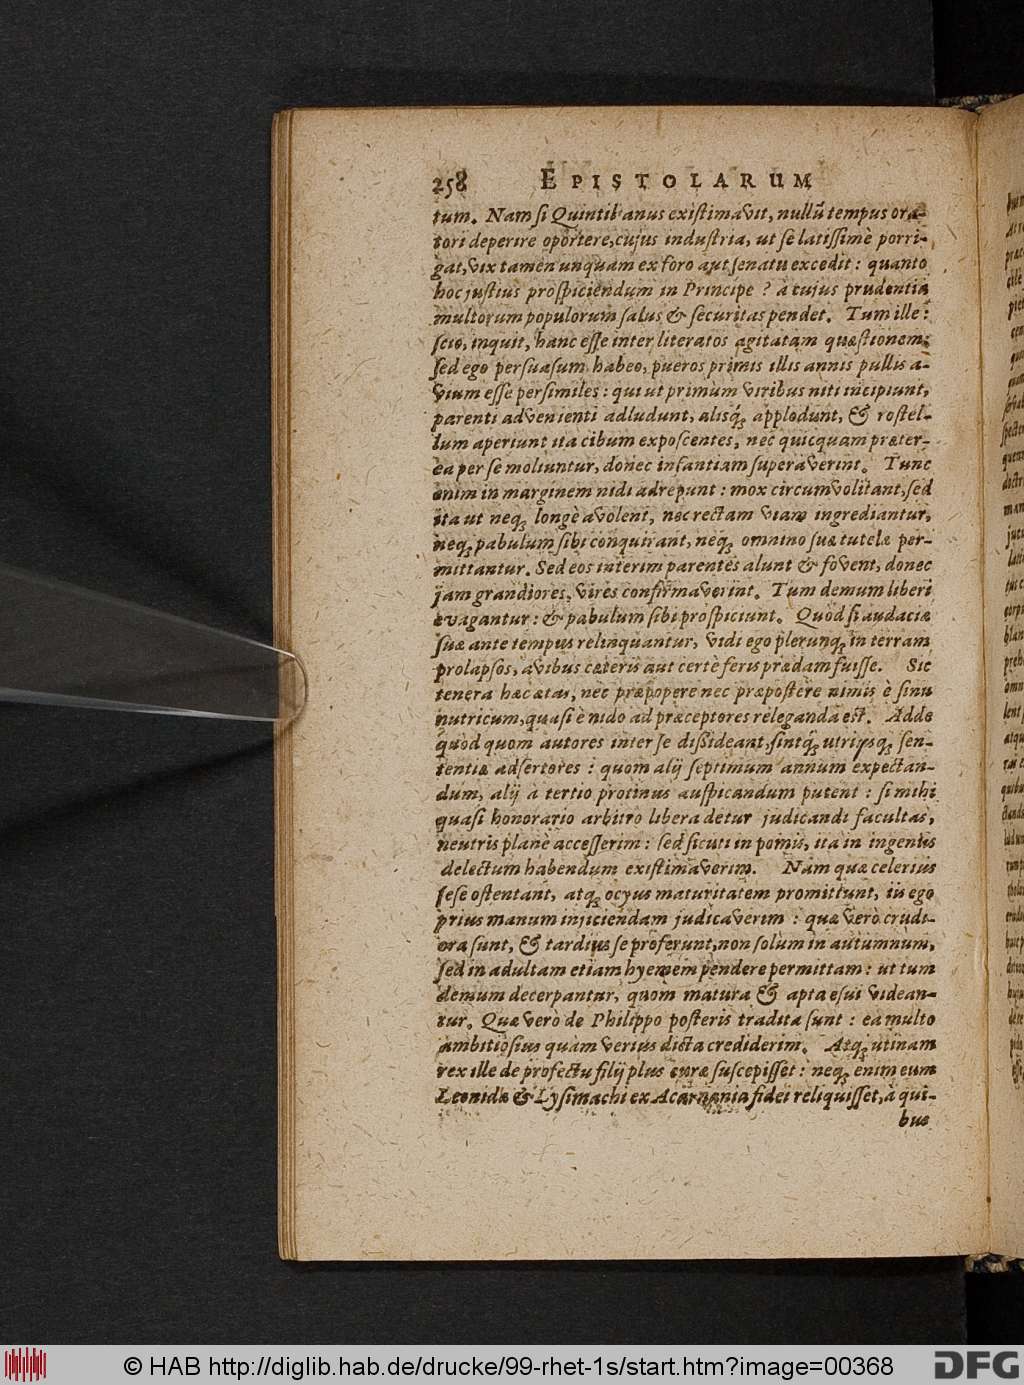 258 EPISTOLARUM
tum. Nam ſi Quintilianus exiſtimavit, nullũ tempus ora-
tori deperire oportere, cujus induſtria, ut ſe latiſſimè porri-
gat, vix tamen unquam ex foro aut ſenatu excedit: quanto
hoc juſtius proſpiciendum in Principe? à cujus prudentia
multorum populorum ſalus & ſecuritas pendet. Tum ille:
ſcio, inquit, hanc eſſe inter literatos agitatam quæſtionem:
ſed ego perſuaſum habeo, pueros primis illis annis pullis a-
vium eſſe perſimiles: qui ut primùm viribus niti incipiunt,
parenti advenienti adludunt, alisq́; applodunt, & roſtel-
lum aperiunt ita cibum expoſcentes, nec quicquam præter-
ea per ſe moliuntur, donec infantiam ſuperaverint. Tunc
enim in marginem nidi adrepunt: mox circumvolitant, ſed
ita ut neq; longè avolent, nec rectam viam ingrediantur,
neq; pabulum ſibi conquirant, neq; omnino ſuæ tutelæ per-
mittantur. Sed eos interim parentes alunt & fovent, donec
jam grandiores, vires confirmaverint. Tum demum liberi
evagantur: & pabulum ſibi proſpiciunt. Quòd ſi audaciæ
ſuæ ante tempus relinquantur, vidi ego plerunq; in terram
prolapſos, avibus cæteris aut certè feris prædam fuiſſe. Sic
tenera hæc ætas, nec præpopere nec præpoſtere nimis è ſinu
nutricum, quaſi è nido ad præceptores releganda eſt. Adde
quòd quom autores inter ſe diſſideant, ſintq́; utriusq; ſen-
tentiæ adſertores: quom alij ſeptimum annum expectan-
dum, alij à tertio protinus auſpicandum putent: ſi mihi
quaſi honorario arbitro libera detur judicandi facultas,
neutris planè acceſſerim: ſed ſicuti in pomis, ita in ingeniis
delectum habendum exiſtimaverim. Nam quæ celerius
ſeſe oſtentant, atq; ocyus maturitatem promittunt, iis ego
prius manum injiciendam judicaverim: quæ verò crudi-
ora ſunt, & tardius ſe proferunt, non ſolum in autumnum,
ſed in adultam etiam hyemem pendere permittam: ut tum
demum decerpantur, quom matura & apta eſui videan-
tur. Quæ verò de Philippo poſteris tradita ſunt: ea multo
ambitioſius quàm verius dicta crediderim. Atq; utinam
rex ille de profectu filij plus curæ ſuſcepiſſet: neq; enim eum
Leonidæ & Lyſimachi ex Acarnania fidei reliquiſſet, à qui-
bus
© HAB http://diglib.hab.de/drucke/99-rhet-1s/start.htm?image=00368
DFG